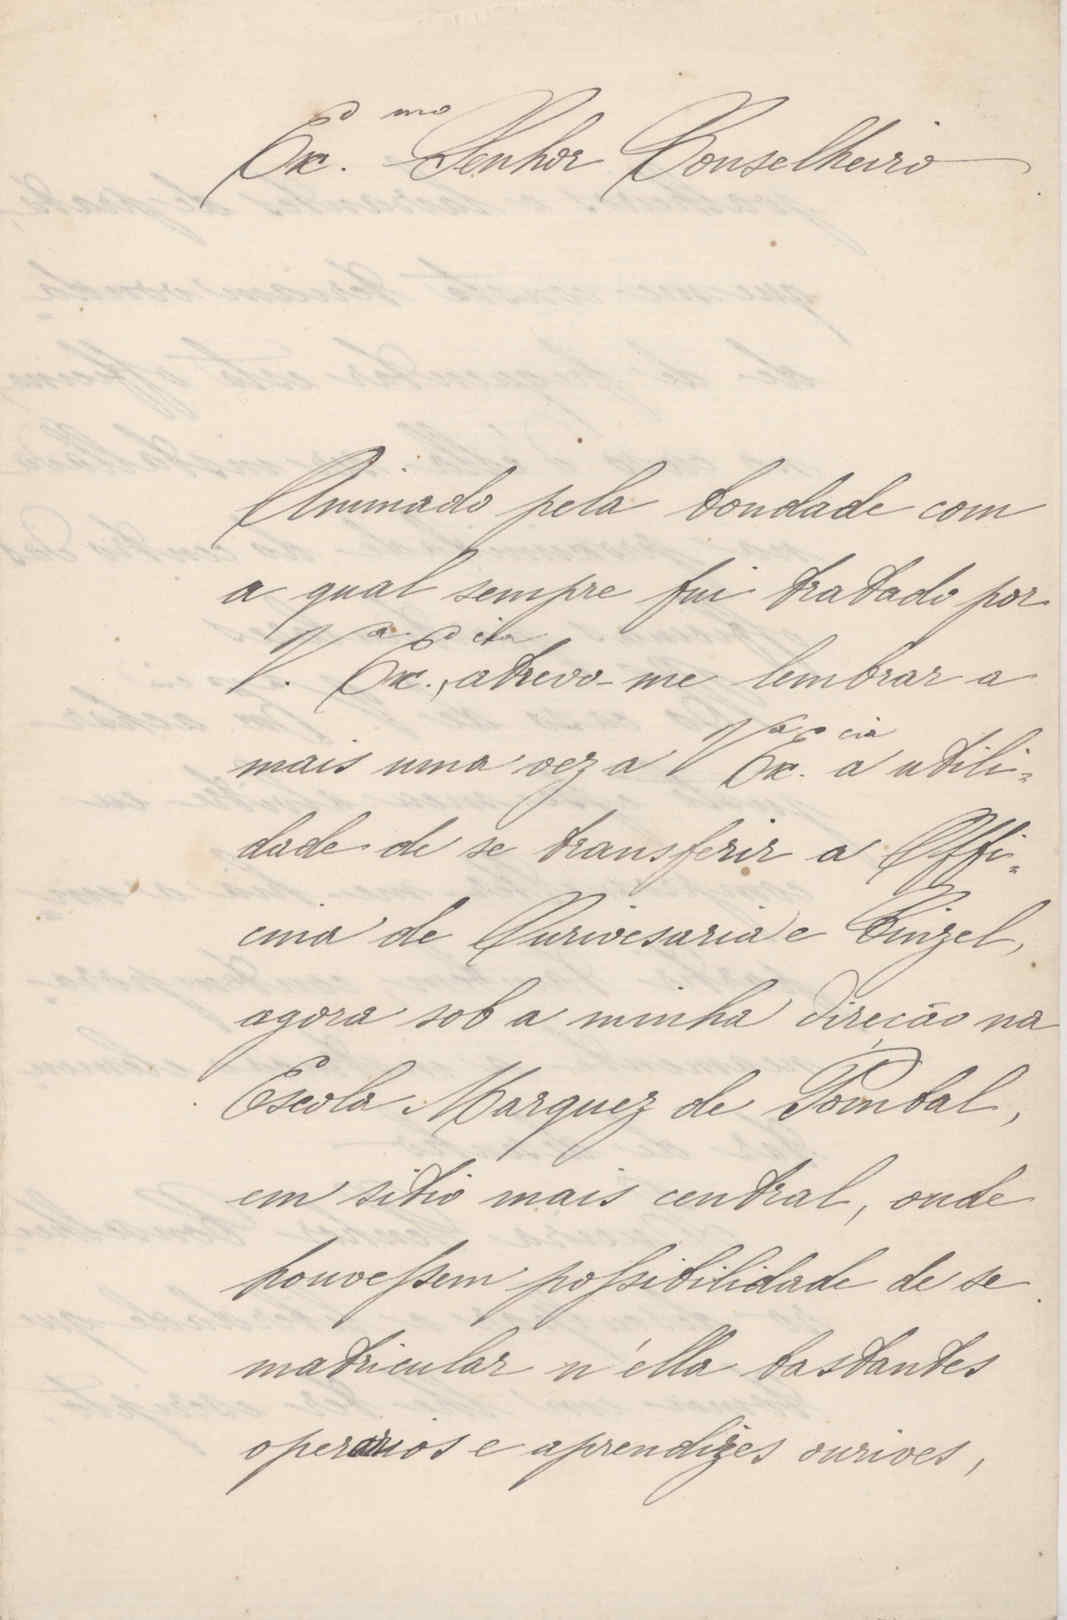 Ex.mo Senhor Conselheiro
Animado pela bondade com
a qual sempre fui tratado por
V.a Ex.cia, atrevo-me lembrar a
mais uma vez a V.a Ex.cia a utili-
dade de se transferir a Offi-
cina de Ourivesaria e Cinzel,
agora sob a minha direção na
Escola Marquez de Pombal,
em sitio mais central, onde
houvessem possibilidade de se
matricular n'ella bastantes
operarios e aprendizes ourives,